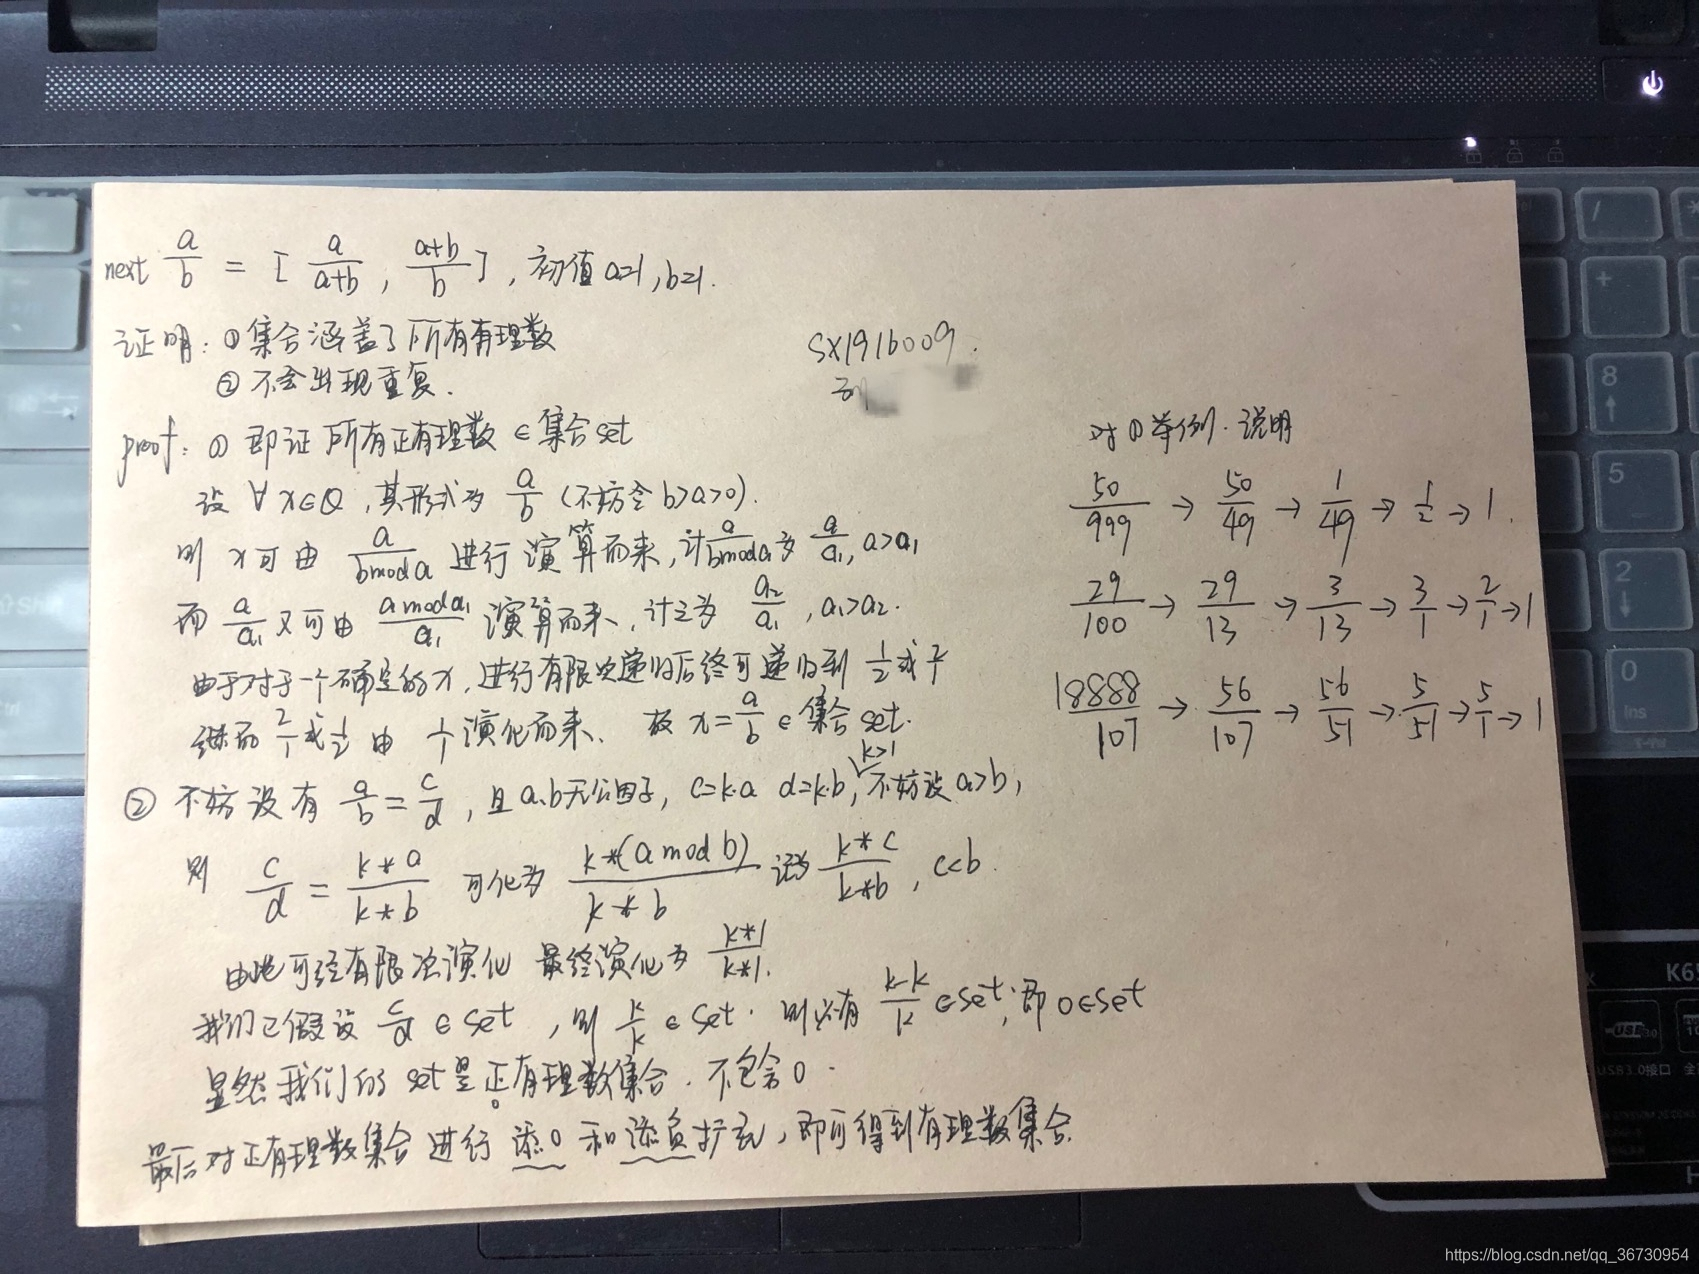 next a/b = [ a/(a+b) , (a+b)/b ] , 初值 a=1 , b=1.
证明: ① 集合涵盖了所有有理数
② 不会出现重复.
SX1916009.
proof: ① 即证 所有正有理数 ∈ 集合 set
设 ∀ x∈Q , 其形式为 a/b (不妨令 b>a>0).
则 x 可由 a/(b mod a) 进行演算而来, 计 a/(b mod a) 为 a/a₁, a>a₁
而 a/a₁ 又可由 (a mod a₁)/a₁ 演算而来, 计之为 a₂/a₁ , a₁>a₂.
由于对于一个确定的 x, 进行有限次递归后终可递归到 1/2 或
继而 2/1 或 1/2 由 1/1 演化而来、 故 x = a/b ∈ 集合 set.
② 不妨设有 a/b = c/d , 且 a、b 无公因子, c=k·a d=k·b, k>1 不妨设 a>b,
则 c/d = (k*a)/(k*b) 可化为 (k*(a mod b))/(k*b) 记为 (k*c)/(k*b) , c<b.
由此可经有限次演化 最终演化为 (k*1)/(k*1).
我们已假设 c/d ∈ set , 则 k/k ∈ set. 则必有 (k-k)/k ∈ set, 即 0∈set
显然我们的 set 是正有理数集合. 不包含 0.
最后对正有理数集合进行添0和添负扩充, 即可得到有理数集合.
对①举例.说明
50/999 → 50/49 → 1/49 → 1/2 → 1.
29/100 → 29/13 → 3/13 → 3/1 → 2/1 → 1
18888/107 → 56/107 → 56/51 → 5/51 → 5/1 → 1
/
+
8
5
2
0
Ins
USB3.0接口
https://blog.csdn.net/qq_36730954